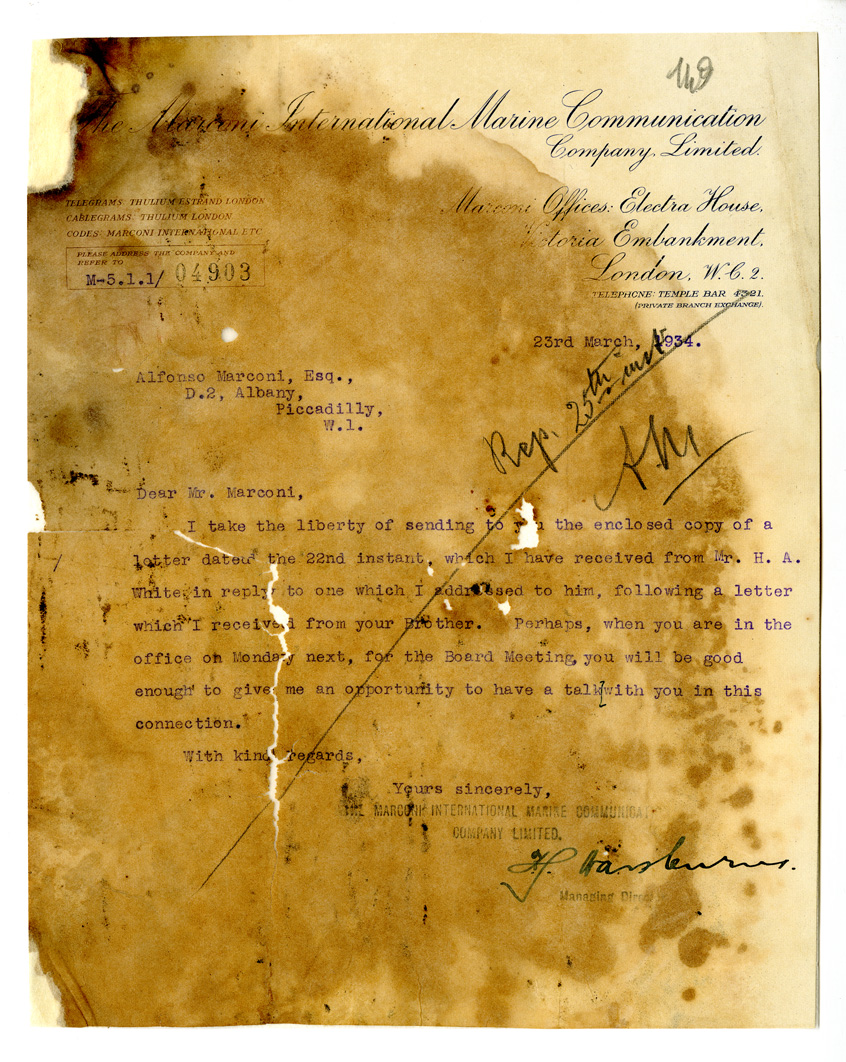 The Marconi International Marine Communication
Company, Limited.
TELEGRAMS: THULIUM ESTRAND LONDON
CABLEGRAMS: THULIUM LONDON
CODES: MARCONI INTERNATIONAL ETC
PLEASE ADDRESS THE COMPANY AND
REFER TO
M-5.1.1/ 04903
Marconi Offices: Electra House,
Victoria Embankment,
London, W.C.2.
TELEPHONE: TEMPLE BAR 4321.
(PRIVATE BRANCH EXCHANGE).
23rd March, 1934.
Rep. 25th inst
AM
Alfonso Marconi, Esq.,
D.2, Albany,
Piccadilly,
W.1.
Dear Mr. Marconi,
I take the liberty of sending to you the enclosed copy of a
letter dated the 22nd instant, which I have received from Mr. H. A.
White, in reply to one which I addressed to him, following a letter
which I received from your Brother. Perhaps, when you are in the
office on Monday next, for the Board Meeting, you will be good
enough to give me an opportunity to have a talk with you in this
connection.
With kind regards,
Yours sincerely,
THE MARCONI INTERNATIONAL MARINE COMMUNICAT
COMPANY LIMITED.
Managing Direc